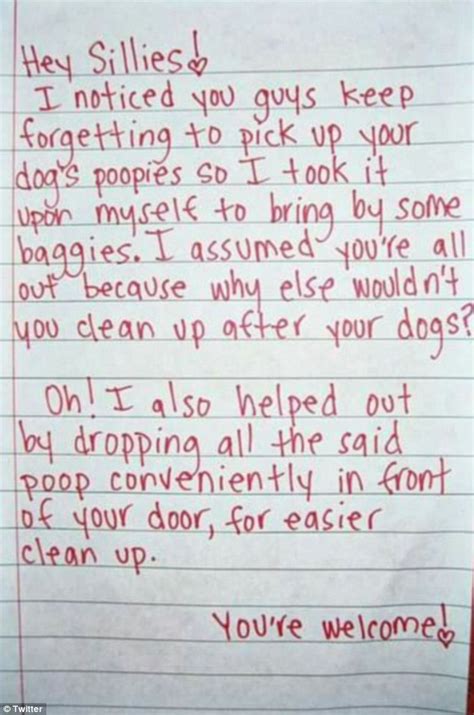 Hey Sillies!
I noticed you guys keep
forgetting to pick up your
dog's poopies so I took it
upon myself to bring by some
baggies. I assumed you're all
out because why else wouldn't
you clean up after your dogs?
Oh! I also helped out
by dropping all the said
poop conveniently in front
of your door, for easier
clean up.
You're welcome!
© Twitter